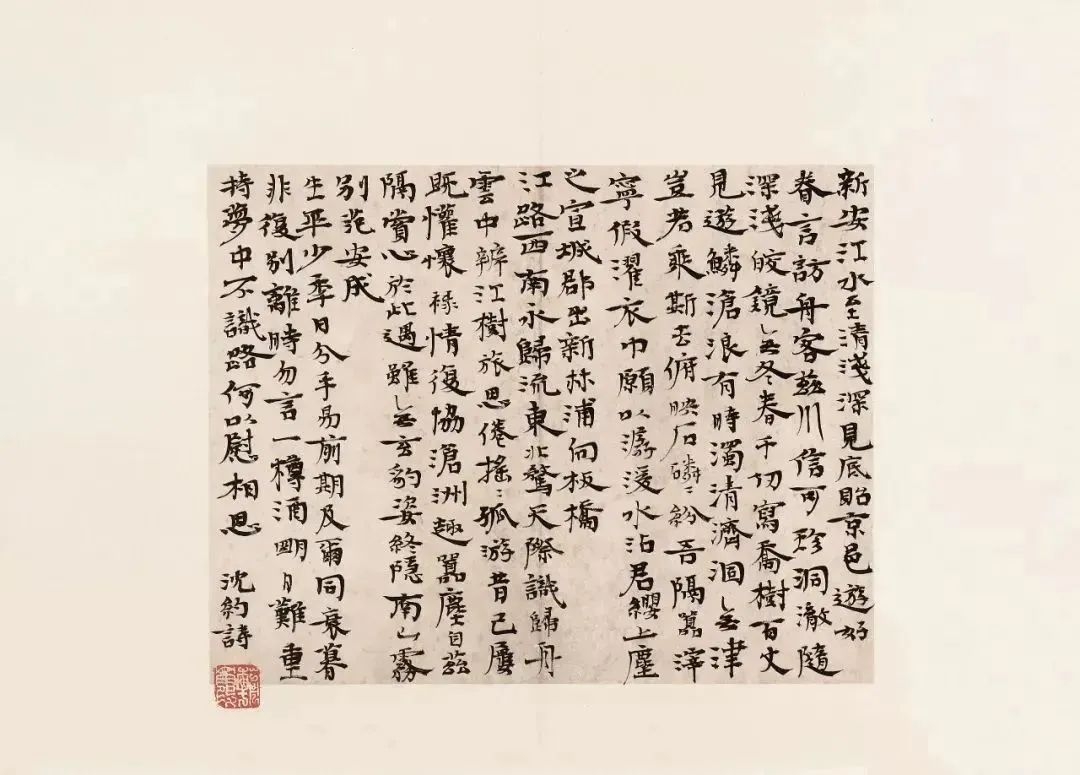 新安江水至清淺深見底貽京邑遊好
眷言訪舟客茲川信可珍洞澈隨
深淺皎鏡無冬春千仞寫喬樹百丈
見遊鱗滄浪有時濁清濟涸無津
豈若乘斯去俯映石磷〻紛吾隔囂滓
寧假濯衣巾願以潺湲水沾君纓上塵
之宣城郡出新林浦向板橋
江路西南永歸流東北騖天際識歸舟
雲中辨江樹旅思倦搖〻孤游昔已屢
既懽懷祿情復協滄洲趣囂塵自茲
隔賞心於此遇雖無玄豹姿終隱南山霧
別范安成
生平少年日分手易前期及爾同衰暮
非復別離時勿言一樽酒明日難重
持夢中不識路何以慰相思 沈約詩